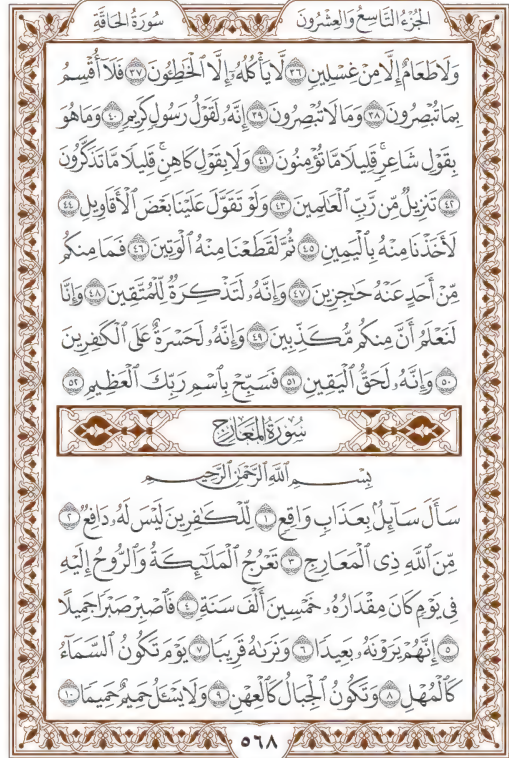 سُورَةُ الحَاقَّةِ
الجُزْءُ التَّاسِعُ وَالعِشْرُونَ
وَلَا طَعَامٌ إِلَّا مِنْ غِسْلِينٍ ٣٦ لَّا يَأْكُلُهُۥٓ إِلَّا ٱلْخَٰطِـُٔونَ ٣٧ فَلَآ أُقْسِمُ
بِمَا تُبْصِرُونَ ٣٨ وَمَا لَا تُبْصِرُونَ ٣٩ إِنَّهُۥ لَقَوْلُ رَسُولٍ كَرِيمٍ ٤٠ وَمَا هُوَ
بِقَوْلِ شَاعِرٍۚ قَلِيلًا مَّا تُؤْمِنُونَ ٤١ وَلَا بِقَوْلِ كَاهِنٍۚ قَلِيلًا مَّا تَذَكَّرُونَ
٤٢ تَنزِيلٌ مِّن رَّبِّ ٱلْعَٰلَمِينَ ٤٣ وَلَوْ تَقَوَّلَ عَلَيْنَا بَعْضَ ٱلْأَقَاوِيلِ ٤٤
لَأَخَذْنَا مِنْهُ بِٱلْيَمِينِ ٤٥ ثُمَّ لَقَطَعْنَا مِنْهُ ٱلْوَتِينَ ٤٦ فَمَا مِنكُم
مِّنْ أَحَدٍ عَنْهُ حَٰجِزِينَ ٤٧ وَإِنَّهُۥ لَتَذْكِرَةٌ لِّلْمُتَّقِينَ ٤٨ وَإِنَّا
لَنَعْلَمُ أَنَّ مِنكُم مُّكَذِّبِينَ ٤٩ وَإِنَّهُۥ لَحَسْرَةٌ عَلَى ٱلْكَٰفِرِينَ
٥٠ وَإِنَّهُۥ لَحَقُّ ٱلْيَقِينِ ٥١ فَسَبِّحْ بِٱسْمِ رَبِّكَ ٱلْعَظِيمِ ٥٢
سُورَةُ المَعَارِجِ
بِسْمِ ٱللَّهِ ٱلرَّحْمَٰنِ ٱلرَّحِيمِ
سَأَلَ سَآئِلٌۢ بِعَذَابٍ وَاقِعٍ ١ لِّلْكَٰفِرِينَ لَيْسَ لَهُۥ دَافِعٌ ٢
مِّنَ ٱللَّهِ ذِى ٱلْمَعَارِجِ ٣ تَعْرُجُ ٱلْمَلَٰٓئِكَةُ وَٱلرُّوحُ إِلَيْهِ
فِى يَوْمٍ كَانَ مِقْدَارُهُۥ خَمْسِينَ أَلْفَ سَنَةٍ ٤ فَٱصْبِرْ صَبْرًا جَمِيلًا
٥ إِنَّهُمْ يَرَوْنَهُۥ بَعِيدًا ٦ وَنَرَىٰهُ قَرِيبًا ٧ يَوْمَ تَكُونُ ٱلسَّمَآءُ
كَٱلْمُهْلِ ٨ وَتَكُونُ ٱلْجِبَالُ كَٱلْعِهْنِ ٩ وَلَا يَسْـَٔلُ حَمِيمٌ حَمِيمًا ١٠
٥٦٨